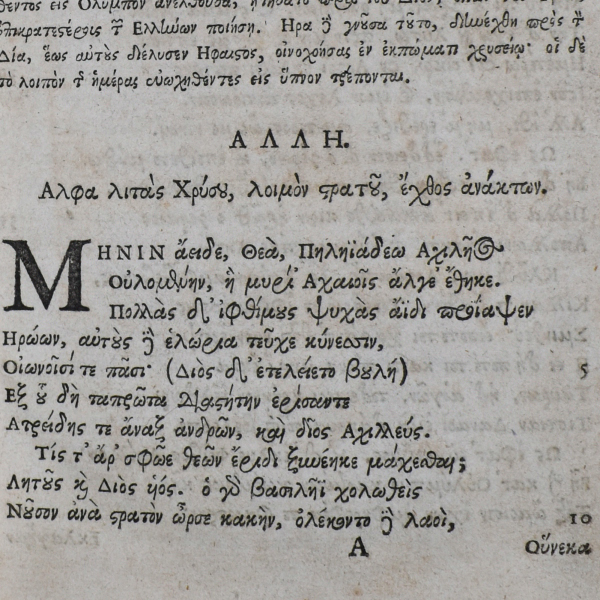 θεντος εἰς Ολυμπον ἀνελθοῦσα,
ἐπικρατεστέροις τ Ἑλλήνων ποιήσῃ. Ηρα ἢ γνοῦσα τῦτο, διηνέχθη πρὸς τ
Δία, ἕως αὐτοὺς διέλυσεν Ηφαιςος, οἰνοχοήσας ἐν ἐκπώματι χρυσείῳ· οἱ δὲ
τὸ λοιπὸν τ ἡμέρας εὐωχηθέντες εἰς ὕπνον τρέπονται.
ΑΛΛΗ.
Αλφα λιτὰς Χρύσου, λοιμὸν ςρατοῦ, ἔχθος ἀνάκτων.
ΜΗΝΙΝ ἄειδε, Θεὰ, Πηληϊάδεω Αχιλῆος
Οὐλομένην, ἣ μυρί Αχαιοῖς ἄλγε ἔθηκε.
Πολλὰς δ' ἰφθίμους ψυχὰς ἄϊδι προΐαψεν
Ηρώων, αὐτοὺς δὲ ἑλώρια τεῦχε κύνεσσιν,
Οἰωνοῖσί τε πᾶσι· (Διὸς δ' ἐτελείετο βουλή) 5
Εξ οὗ δὴ ταπρῶτα διαςήτην ἐρίσαντε
Ατρείδης τε ἄναξ ἀνδρῶν, καὶ δῖος Αχιλλεύς.
Τίς τ' ἄρ' σφῶε θεῶν ἔριδι ξυνέηκε μάχεσθαι;
Λητοῦς καὶ Διὸς υἱός. ὁ γὰρ βασιλῆϊ χολωθεὶς
Νοῦσον ἀνὰ ςρατὸν ὦρσε κακὴν, ὀλέκοντο δὲ λαοὶ, 10
Α Οὕνεκα